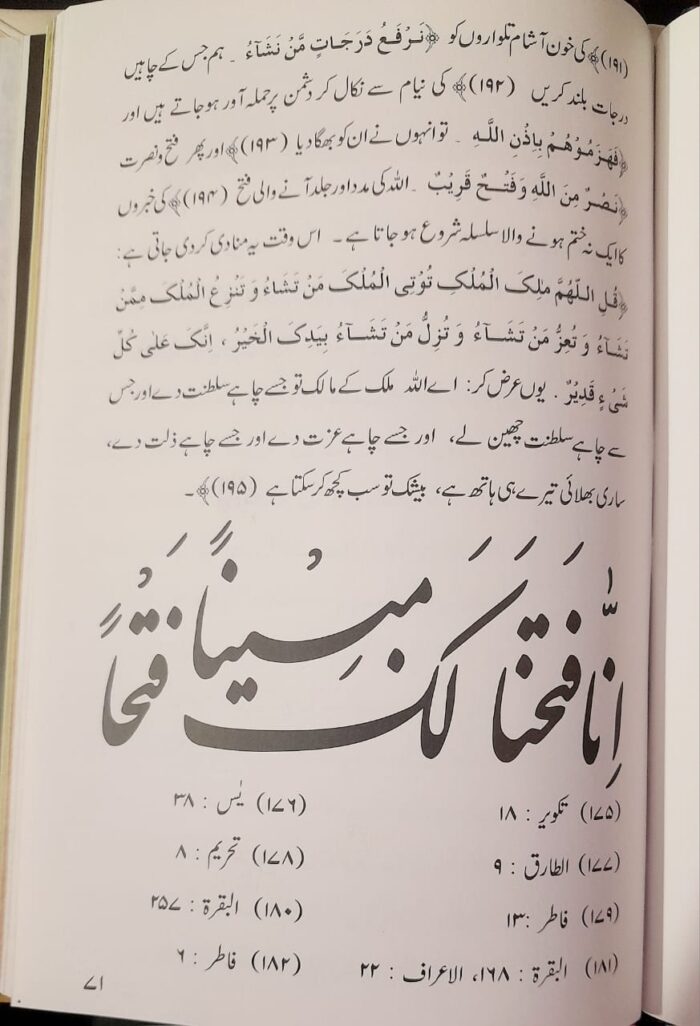 (۱۹۱)﴾ کی خون آشام تلواروں کو ﴿نَرْفَعُ دَرَجَاتٍ مَّنْ نَشَآءُ ۔ ہم جس کے چاہیں
درجات بلند کریں (۱۹۲)﴾ کی نیام سے نکال کر دشمن پر حملہ آور ہو جاتے ہیں اور
﴿فَهَزَمُوْهُمْ بِاِذْنِ اللّٰهِ ۔ تو انہوں نے ان کو بھگا دیا (۱۹۳)﴾ اور پھر فتح و نصرت
﴿نَصْرٌ مِنَ اللّٰهِ وَفَتْحٌ قَرِيْبٌ ۔ اللہ کی مدد اور جلد آنے والی فتح (۱۹۴)﴾ کی خبروں
کا ایک نہ ختم ہونے والا سلسلہ شروع ہو جاتا ہے ۔ اس وقت یہ منادی کر دی جاتی ہے :
﴿قُلِ اللّٰهُمَّ مٰلِکَ الْمُلْکِ تُوْتِی الْمُلْکَ مَنْ تَشَاءُ وَ تَنْزِعُ الْمُلْکَ مِمَّنْ
تَشَآءُ وَ تُعِزُّ مَنْ تَشَآءُ وَ تُزِلُّ مَنْ تَشَآءُ بِیَدِکَ الْخَیْرُ ، اِنَّکَ عَلٰی کُلِّ
شَیْءٍ قَدِیْرٌ . یوں عرض کر : اے اللہ ملک کے مالک تو جسے چاہے سلطنت دے اور جس
سے چاہے سلطنت چھین لے، اور جسے چاہے عزت دے اور جسے چاہے ذلت دے،
ساری بھلائی تیرے ہی ہاتھ ہے، بیشک تو سب کچھ کر سکتا ہے (۱۹۵)﴾ ۔
اِنَّا فَتَحنَا لَکَ فَتحًا مُبِینًا
(۱۷۵) تکویر : ۱۸ (۱۷۶) یٰس : ۳۸
(۱۷۷) الطارق : ۹ (۱۷۸) تحریم : ۸
(۱۷۹) فاطر : ۱۳ (۱۸۰) البقرة : ۲۵۷
(۱۸۱) البقرة : ۱۶۸، الاعراف : ۲۲ (۱۸۲) فاطر : ۶
۷۱